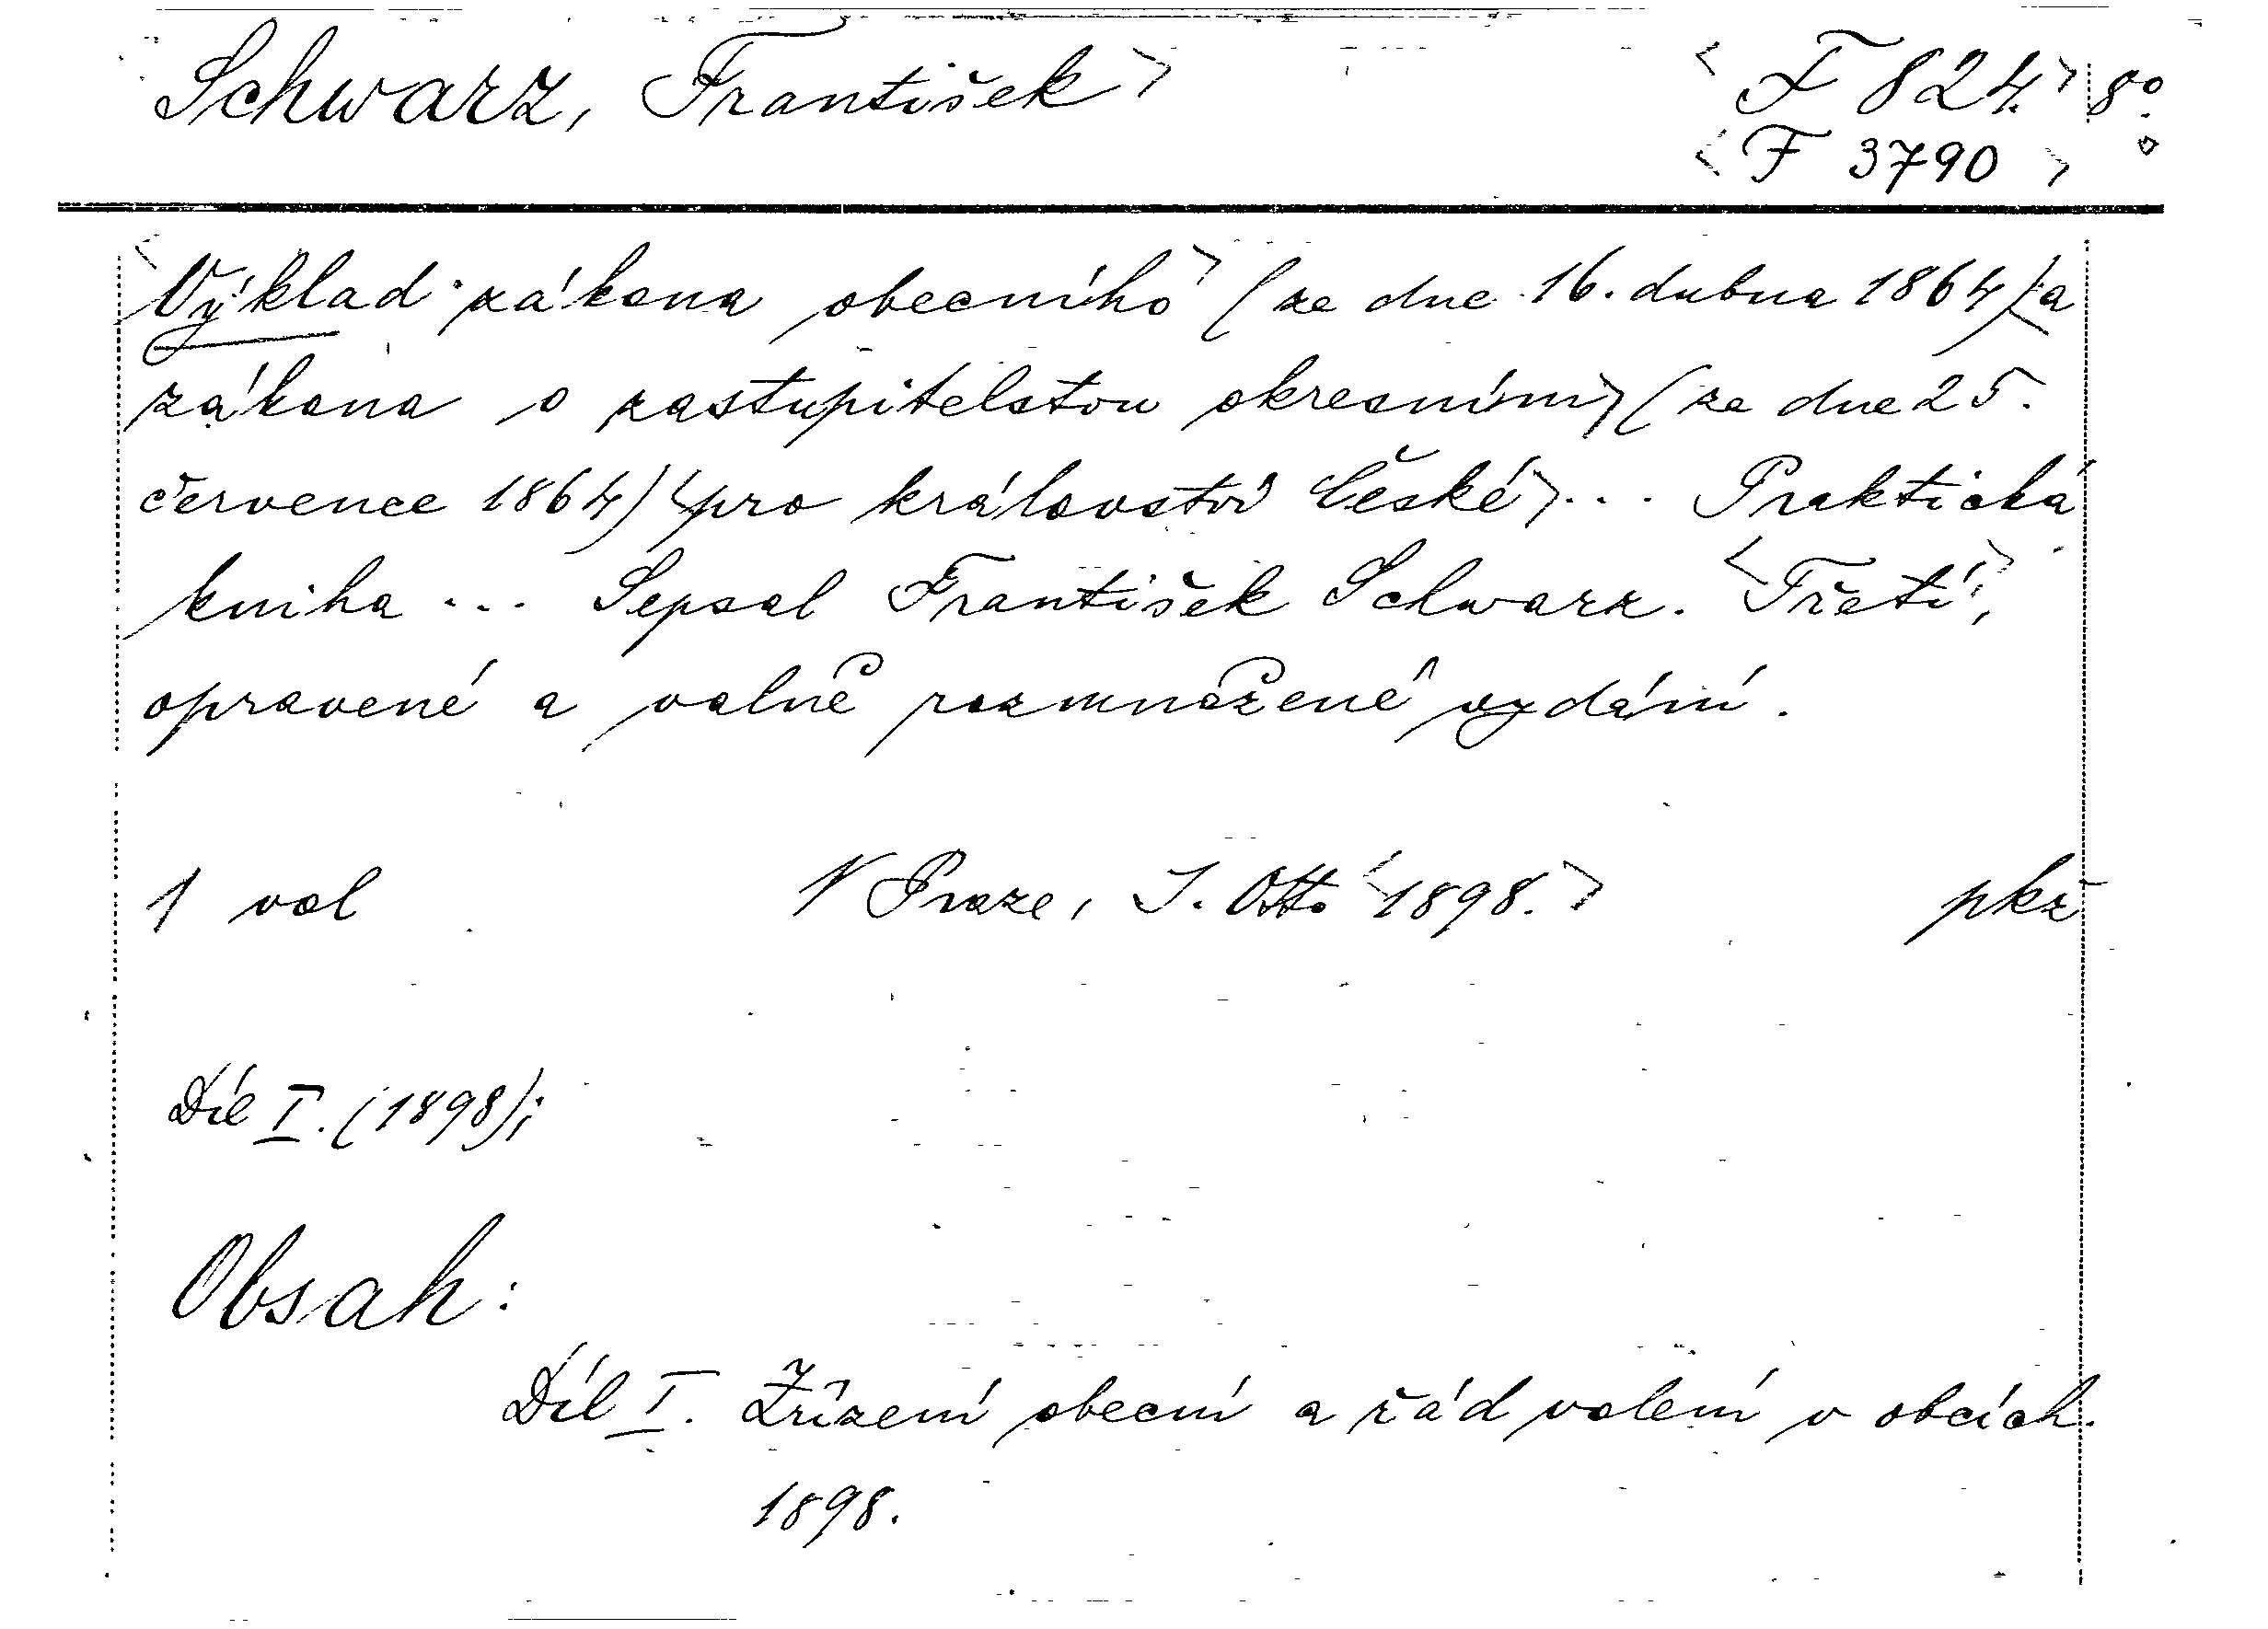 Schwarz, František> <F 824.> 8°
<F 3790>
<Výklad zákona obecního> (ze dne 16. dubna 1864) <a
zákona o zastupitelstvu okresním> (ze dne 25.
července 1864) <pro království České> ... Praktická
kniha ... Sepsal František Schwarz. <Třetí>,
opravené a valně rozmnožené vydání.
1 vol V Praze, J. Otto <1898.> pkž
Díl I. (1898);
Obsah:
Díl I. Zřízení obecní a řád volení v obcích.
1898.